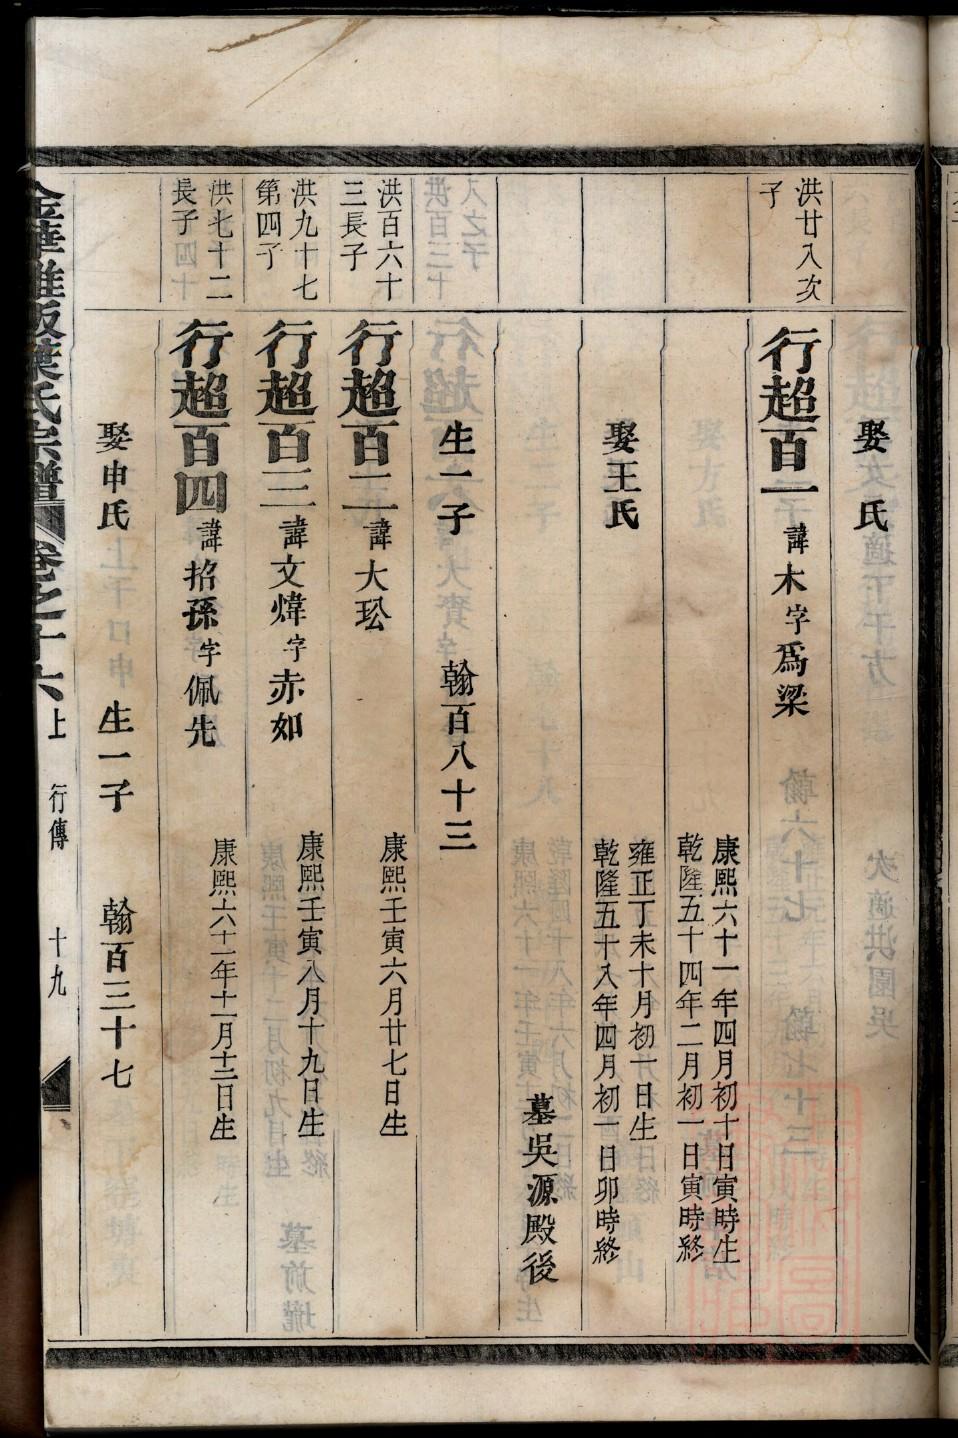 娶 氏
洪廿入次
子
行超百一 諱木 字為梁
康熙六十一年四月初十日寅時生
乾隆五十四年二月初一日寅時終
娶王氏
雍正丁未十月初一日生
乾隆五十八年四月初一日卯時終
墓吳源殿後
生一子 翰百八十三
洪百六十
三長子
行超百二 諱大玜
康熙壬寅六月廿七日生
洪九十七
第四子
行超百三 諱文煒 字赤如
康熙壬寅八月十九日生
洪七十二
長子
行超百四 諱招孫 字佩先
康熙六十一年十一月十二日生
娶申氏 生一子 翰百三十七
葉氏宗譜 卷之十六上 行傳 十九